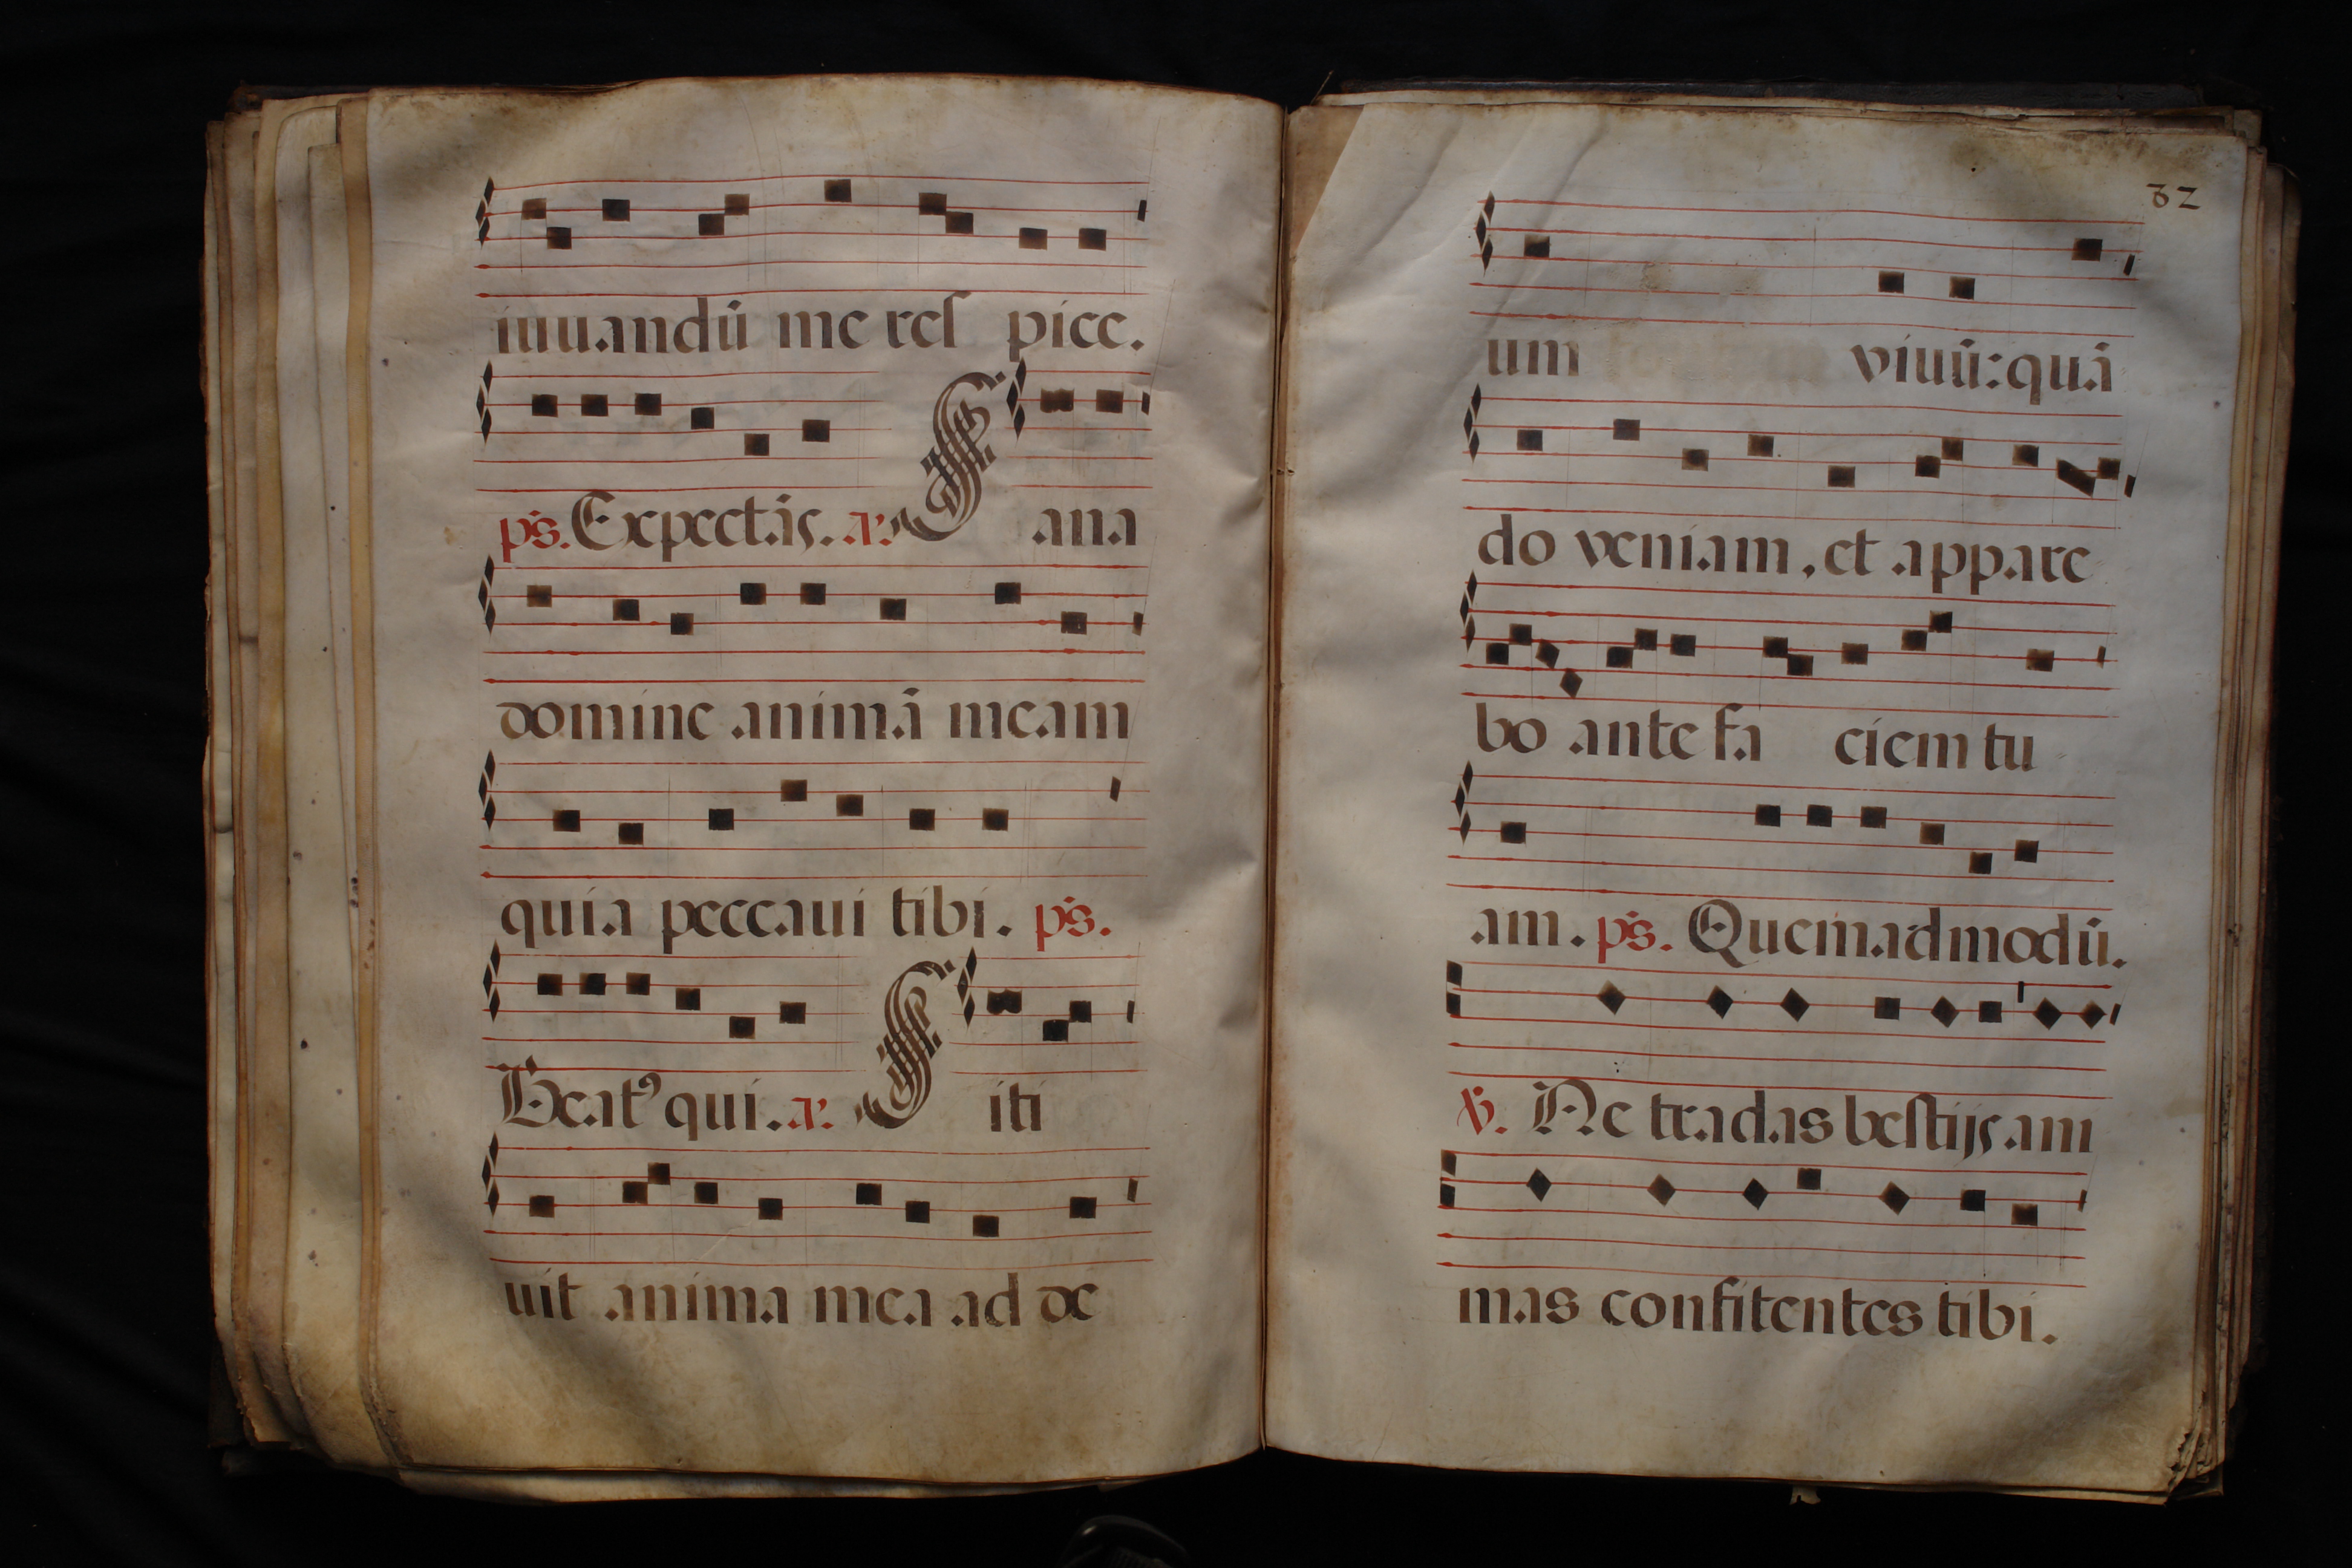 iuuandū me res pice.
ps. Expectās. a. S ana
domine animā meam
quia peccaui tibi. ps.
Beat⁹ qui. a. S iti
uit anima mea ad de
32
um viuū: quā
do veniam, et appare
bo ante fa ciem tu
am. ps. Quemadmodū.
V. Ne tradas bestijs ani
mas confitentes tibi.